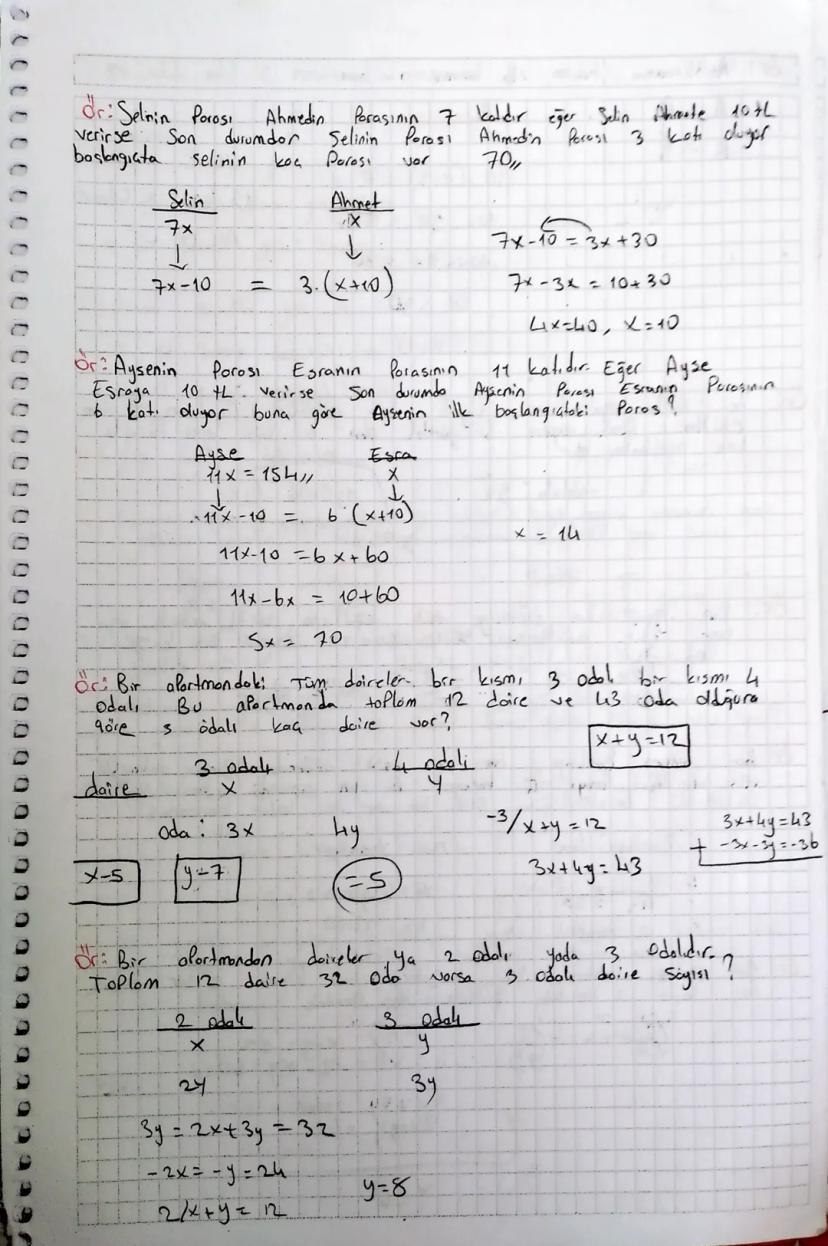 Ör: Selinin Parası Ahmedin Parasının 7 katıdır eğer Selin Ahmete 10 tL
verirse Son durumdor Selinin Parası Ahmedin Parası 3 katı oluyor
başlangıçta selinin kaç Parası var 70,,
Selin Ahmet
7x x
↓ ↓
7x-10 = 3.(x+10)
7x-10 = 3x+30
7x-3x = 10+30
4x=40, x=10
Ör: Aysenin Parası Esranın Parasının 11 katıdır. Eğer Ayse
Esraya 10 tL verirse Son durumda Aysenin Parası Esranın Parasının
6 katı oluyor buna göre Aysenin ilk başlangıçtaki Paras?
Ayse Esra
11x = 154,, x
↓ ↓
11x-10 = 6 (x+10)
11x-10 = 6x+60
11x-6x = 10+60
5x = 70
x = 14
Ör: Bir apartmandaki Tüm daireler bir kısmı 3 odalı bir kısmı 4
odalı Bu apartmanda toplam 12 daire ve 43 oda olduğuna
göre 3 odalı kaç daire var?
x+y=12
3 odalı 4 odalı
daire x y
oda: 3x 4y
-3/x+y=12
3x+4y=43
3x+4y=43
+ -3x-3y=-36
x-5 y=7 =5
Ör: Bir apartmandan daireler ya 2 odalı yada 3 odalıdır.
Toplam 12 daire 32 oda varsa 3 odalı daire sayısı?
2 odalı 3 odalı
x y
2y 3y
3y = 2x+3y = 32
-2x = -y = 24
2/x+y = 12
y=8